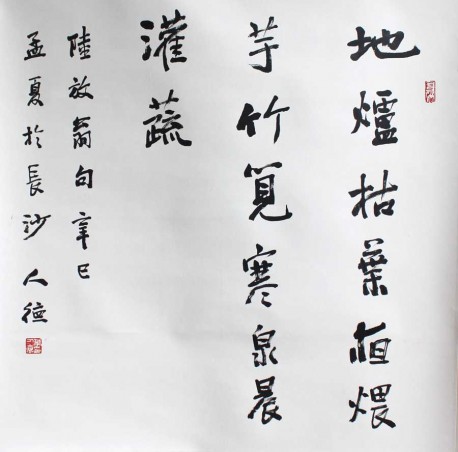 地爐枯葉夜煨
芋竹筧寒泉晨
灌蔬
陸放翁句辛巳
孟夏於長沙人德